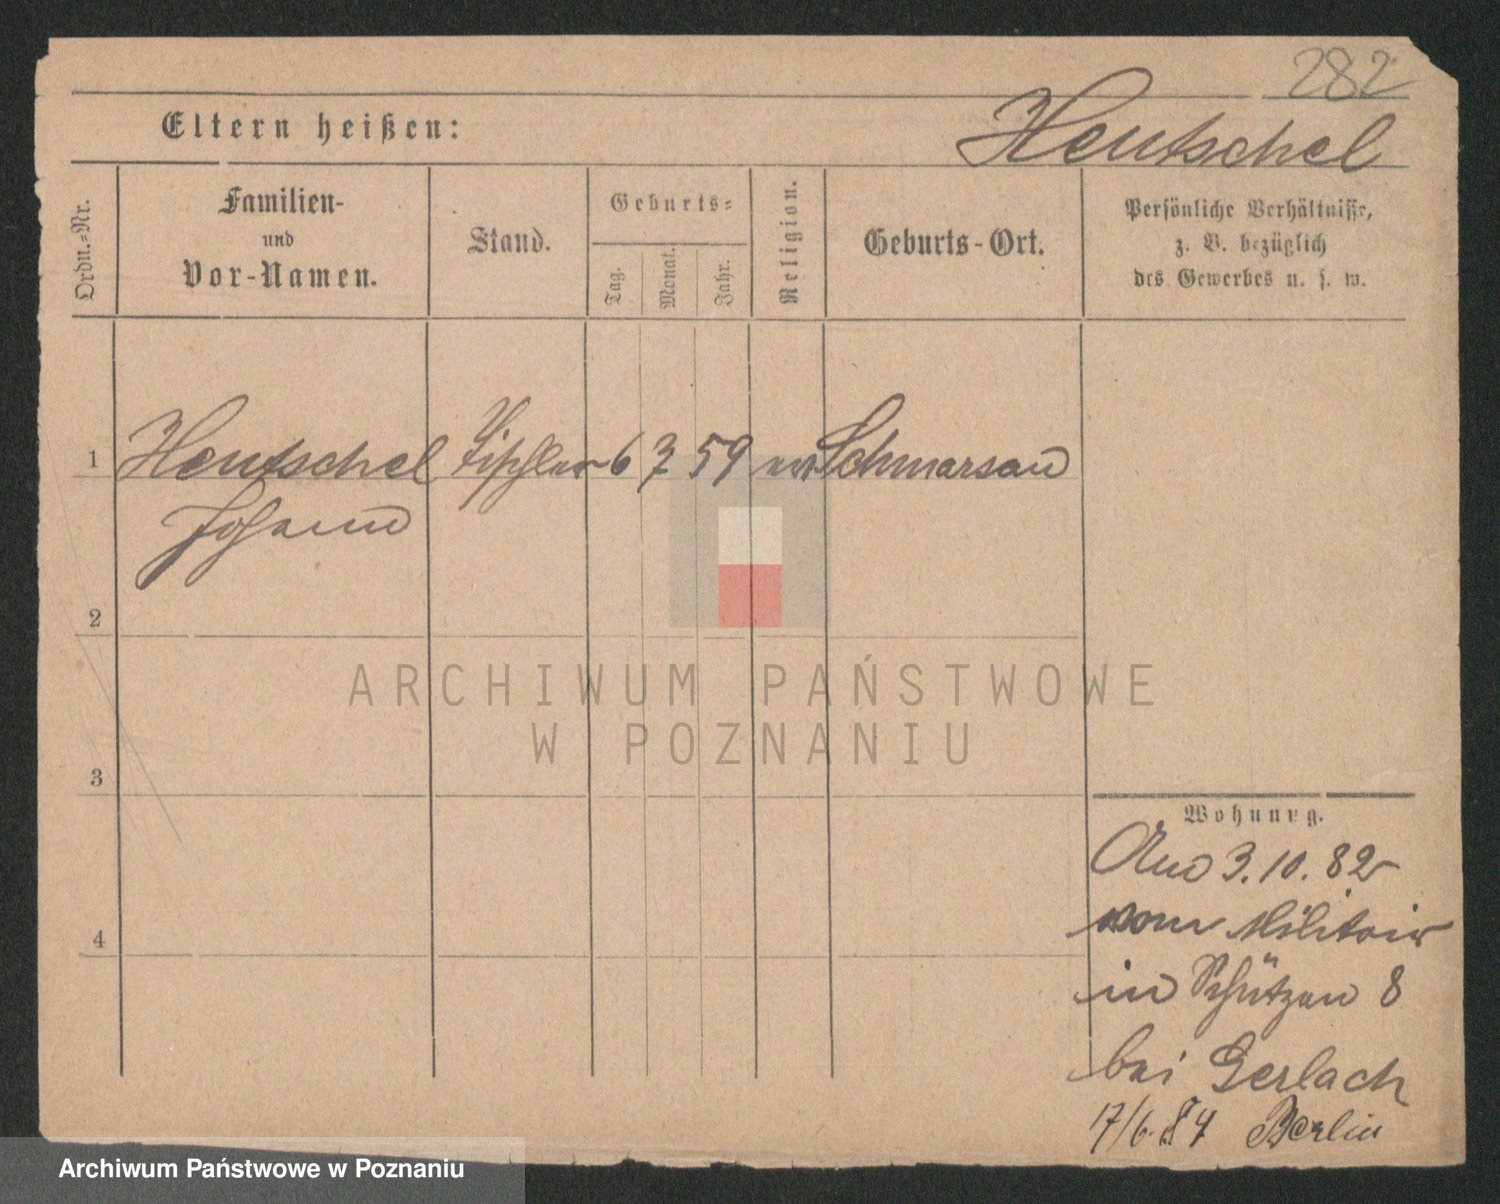 282
Eltern heißen:
Hentschel
Ordn.=Nr.
Familien-
und
Vor-Namen.
Stand.
Geburts=
Tag.
Monat.
Jahr.
Religion.
Geburts-Ort.
Persönliche Verhältnisse,
z. B. bezüglich
des Gewerbes u. s. w.
1 Hentschel Tischler 6 7 59 ev Schmarsau
Johann
2
3
4
ARCHIWUM PAŃSTWOWE
W POZNANIU
Wohnung.
Am 3.10.82
vom Militair
in Schützen 8
bei Gerlach
17/6.84 Berlin
Archiwum Państwowe w Poznaniu